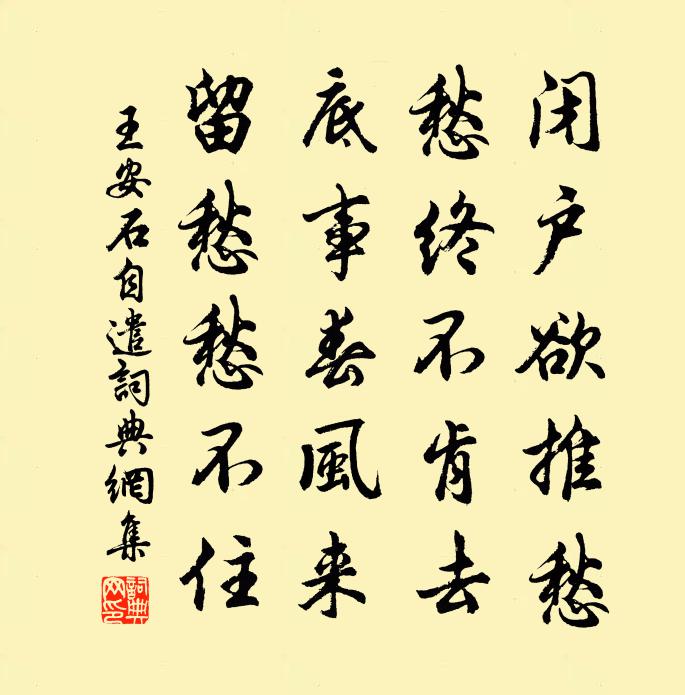 闭户欲推愁
愁终不肯去
底事春風来
留愁愁不住
王安石自遣詞典網集
詞典網印